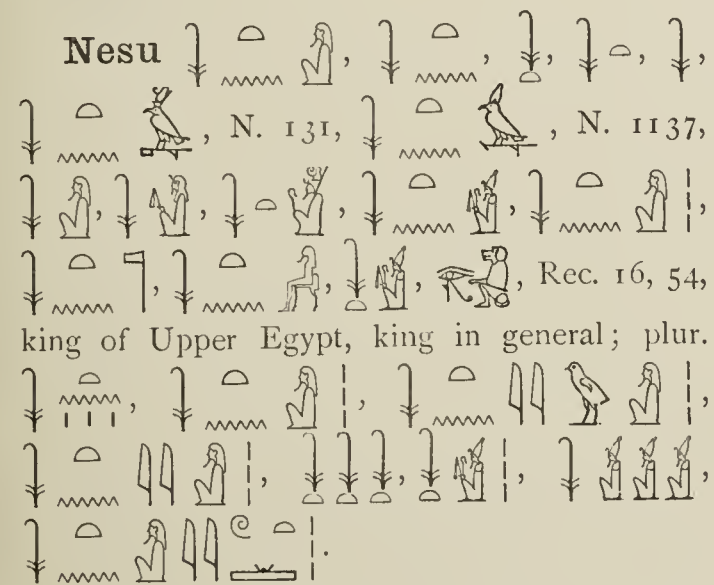 Nesu 𓇓𓏏𓈖𓀭, 𓇓𓏏𓈖, 𓇓𓏏, 𓇓𓏏, 𓇓,
𓇓𓏏𓈖, N. 131, 𓇓𓏏𓈖, N. 1137,
𓇓𓀭, 𓇓, 𓇓𓏏, 𓇓𓏏𓈖, 𓇓𓏏𓈖𓀭𓏥,
𓇓𓏏𓈖𓊹, 𓇓𓏏𓈖, 𓇓𓏏, 𓂀, Rec. 16, 54,
king of Upper Egypt, king in general; plur.
𓇓𓏏𓈖𓏥, 𓇓𓏏𓈖𓀭𓏥, 𓇓𓏏𓈖𓇋𓇋𓅱𓀭𓏥,
𓇓𓏏𓈖𓇋𓇋𓀭𓏥, 𓇓𓏏𓇓𓏏𓇓𓏏, 𓇓𓏏𓏥, 𓇓,
𓇓𓏏𓈖𓀭𓇋𓇋𓏲𓏏𓏛𓏥.